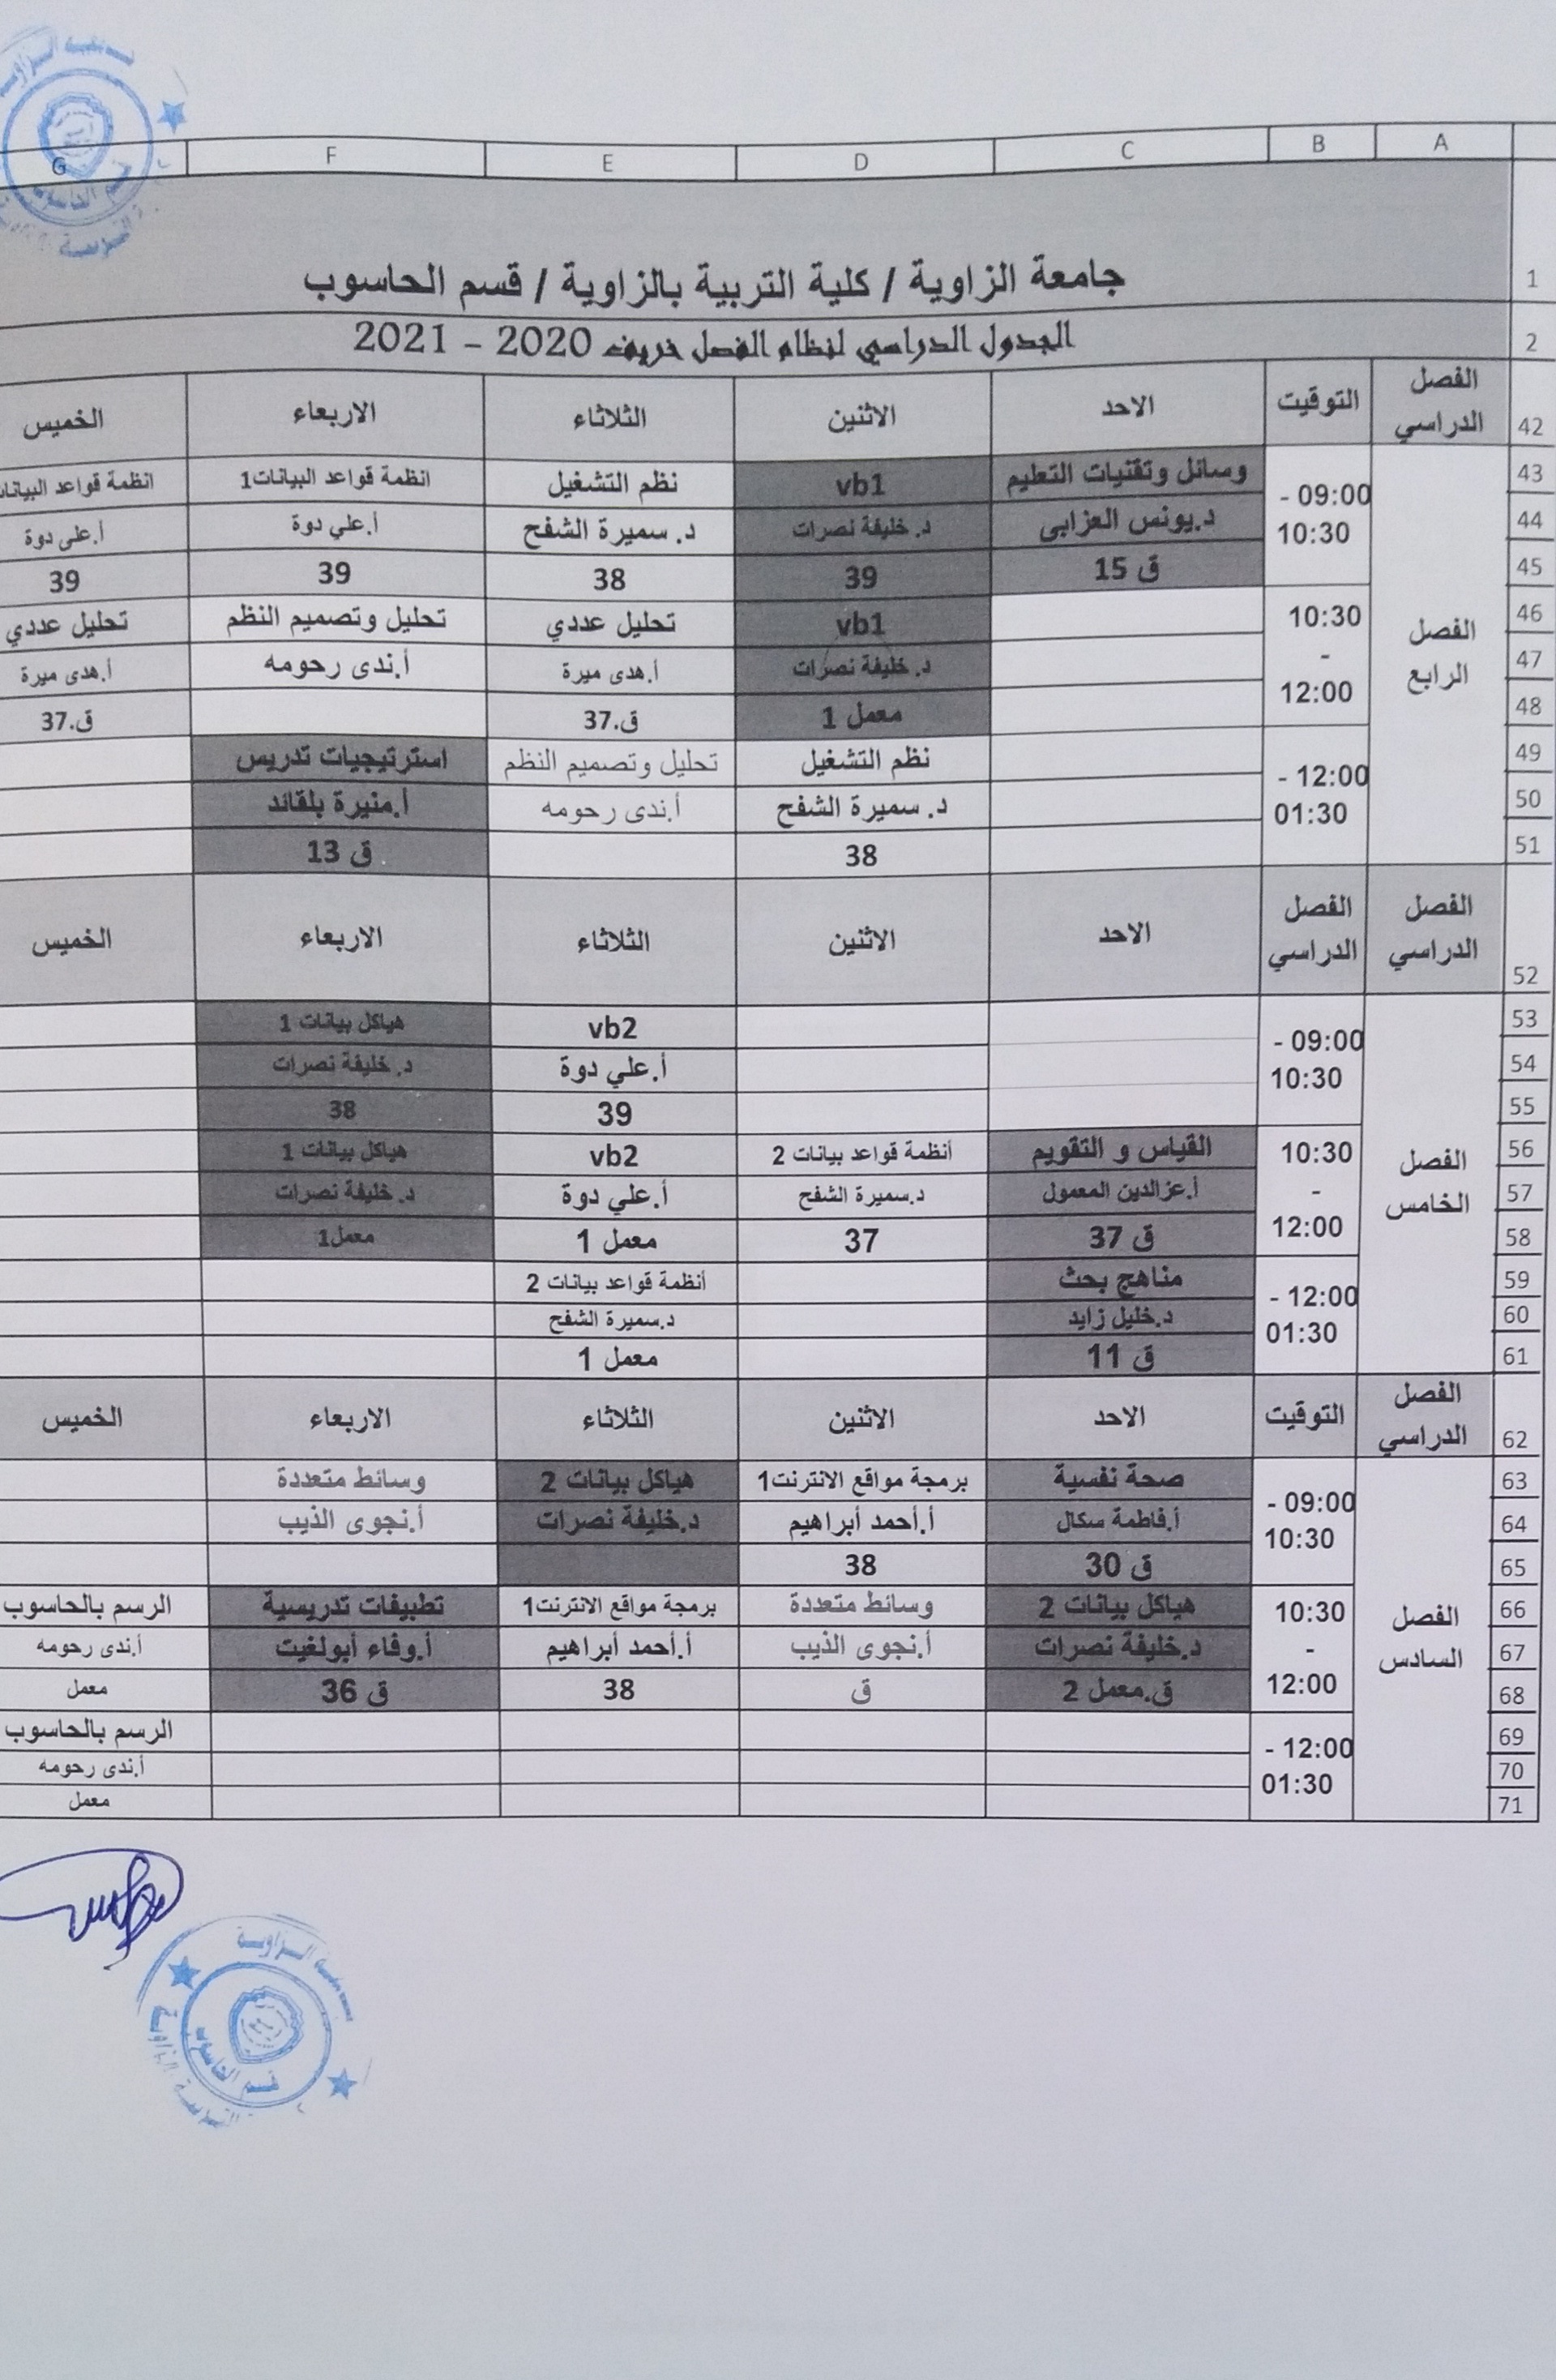 A B C D E F G
1 جامعة الزاوية / كلية التربية بالزاوية / قسم الحاسوب
2 الجدول الدراسي لنظام الفصل خريف 2020 - 2021
42 الفصل الدراسي التوقيت الاحد الاثنين الثلاثاء الاربعاء الخميس
43 الفصل الرابع 09:00 - 10:30 وسائل وتقنيات التعليم vb1 نظم التشغيل انظمة قواعد البيانات1 انظمة قواعد
44 د.يونس العزابى د. خليفة نصرات د. سميرة الشفح أ.علي دوة أ.على دوة
45 ق 15 39 38 39 39
46 10:30 - 12:00 vb1 تحليل عددي تحليل وتصميم النظم تحليل عددي
47 د. خليفة نصرات أ.هدى ميرة أ.ندى رحومه أ.هدى ميرة
48 معمل 1 ق.37 ق.37
49 12:00 - 01:30 نظم التشغيل تحليل وتصميم النظم استرتيجيات تدريس
50 د. سميرة الشفح أ.ندى رحومه أ.منيرة بلقائد
51 38 ق 13
52 الفصل الدراسي الفصل الدراسي الاحد الاثنين الثلاثاء الاربعاء الخميس
53 الفصل الخامس 09:00 - 10:30 vb2 هياكل بيانات 1
54 أ.علي دوة د. خليفة نصرات
55 39 38
56 10:30 - 12:00 القياس و التقويم أنظمة قواعد بيانات 2 vb2 هياكل بيانات 1
57 أ.عزالدين المعمول د.سميرة الشفح أ.علي دوة د. خليفة نصرات
58 ق 37 37 معمل 1 معمل1
59 12:00 - 01:30 مناهج بحث أنظمة قواعد بيانات 2
60 د.خليل زايد د.سميرة الشفح
61 ق 11 معمل 1
62 الفصل الدراسي التوقيت الاحد الاثنين الثلاثاء الاربعاء الخميس
63 الفصل السادس 09:00 - 10:30 صحة نفسية برمجة مواقع الانترنت1 هياكل بيانات 2 وسائط متعددة
64 أ.فاطمة سكال أ.أحمد أبراهيم د.خليفة نصرات أ.نجوى الذيب
65 ق 30 38
66 10:30 - 12:00 هياكل بيانات 2 وسائط متعددة برمجة مواقع الانترنت1 تطبيقات تدريسية الرسم بالحاسوب
67 د.خليفة نصرات أ.نجوى الذيب أ.أحمد أبراهيم أ.وفاء أبولغيت أ.ندى رحومه
68 ق.معمل 2 ق 38 ق 36 معمل
69 12:00 - 01:30 الرسم بالحاسوب
70 أ.ندى رحومه
71 معمل
قسم الحاسوب